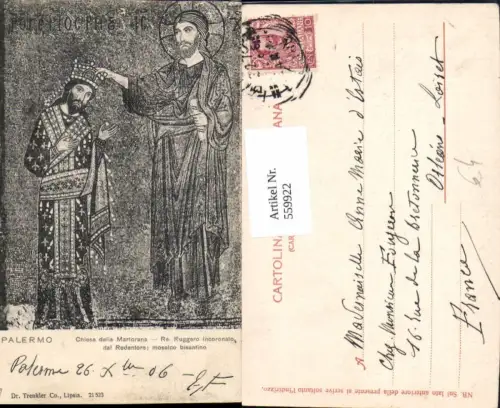 PALERMO
Chiesa della Martorana — Re Ruggero incoronato
dal Redentore; mosaico bisantino
Palermo 26. X 06 —
Dr. Trenkler Co., Lipsia. 21 523
Artikel Nr.
559922
CARTOLINA
A Mademoiselle Anne Marie d'Istais
Chez Monsieur
16. rue de la Bretonnerie
Orléans - Loiret
France
NB. Sul lato anteriore della presente si scrive soltanto l'indirizzo.